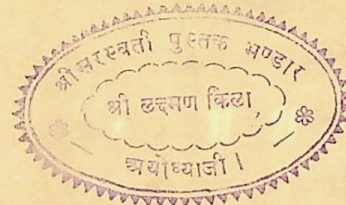 श्री सरस्वती पुस्तक भण्डार
श्री लक्ष्मण किला
अयोध्याजी ।